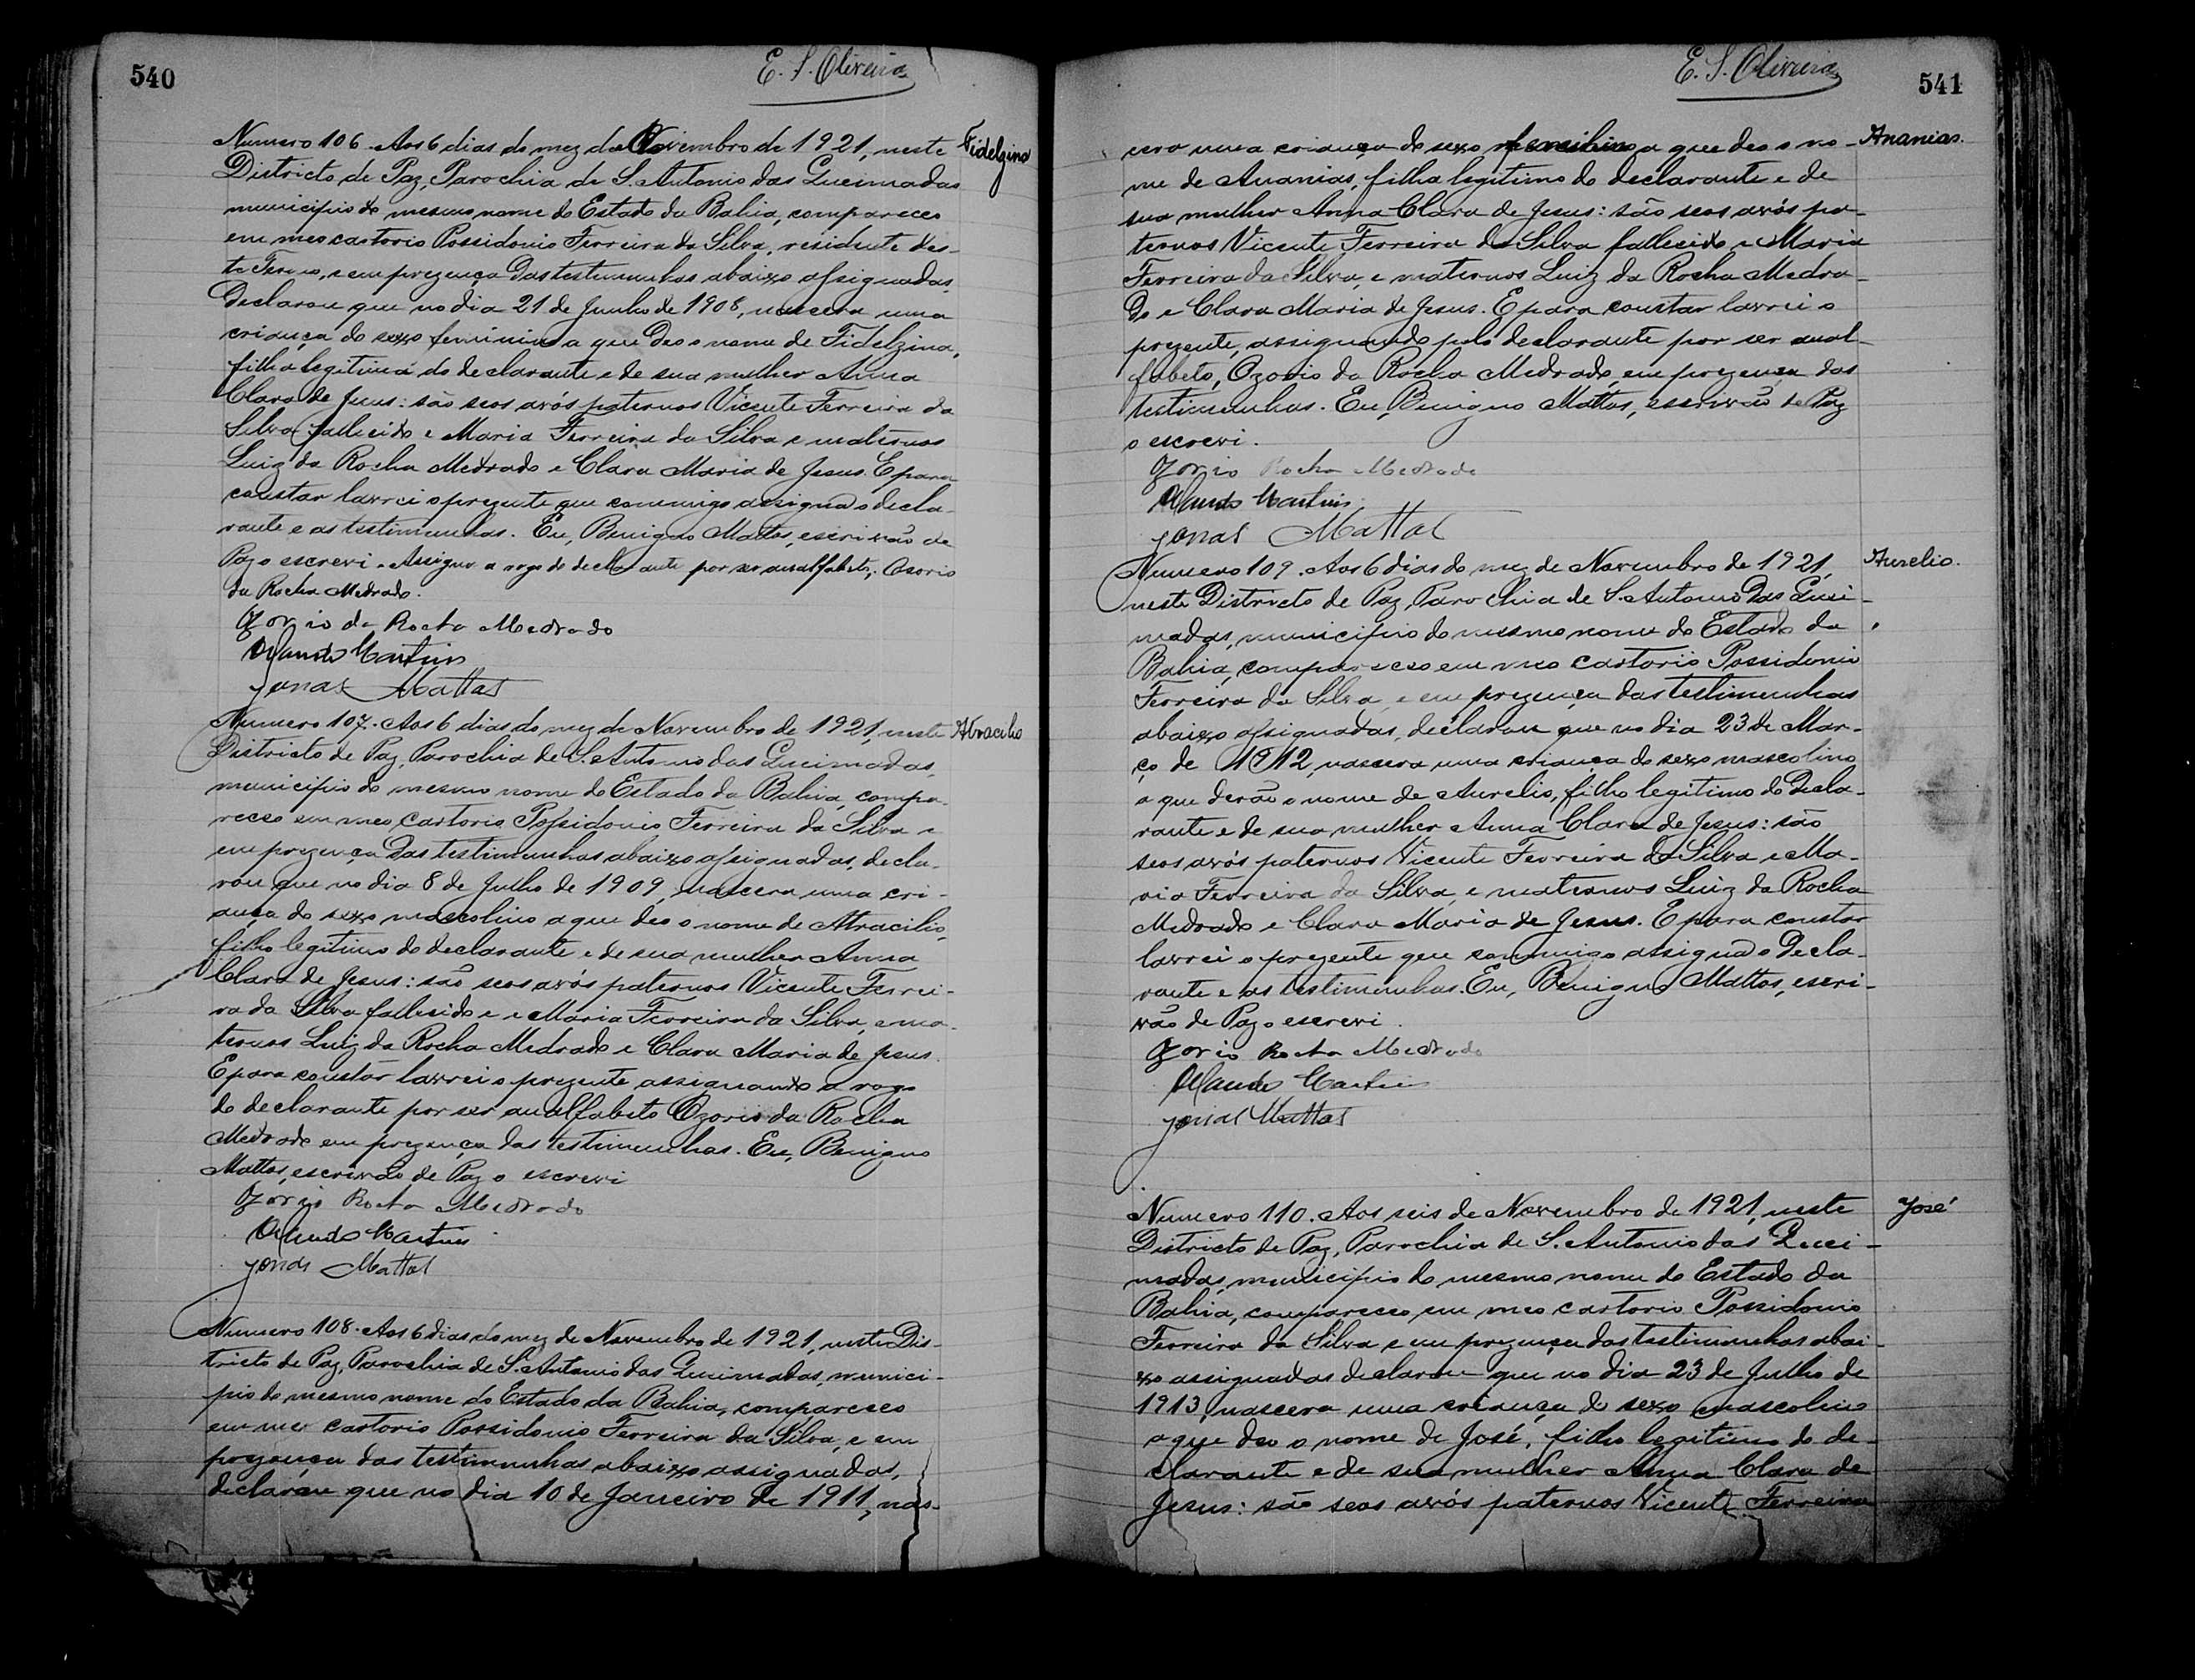 540
E. S. Oliveira
Numero 106. Aos 6 dias do mez de Novembro de 1921, neste
Fidelzina
Districto de Paz, Parochia de S. Antonio das Queimadas
municipio do mesmo nome do Estado da Bahia, compareceo
em meo cartorio Possidonio Ferreira da Silva, residente des-
te Termo, e em prezença das testimunhas abaixo assignadas,
declarou que no dia 21 de Junho de 1908, nascera uma
criança do sexo feminino a que deo o nome de Fidelzina,
filha legitima do declarante e de sua mulher Anna
Clara de Jesus: são seos avós paternos Vicente Ferreira da
Silva fallecido e Maria Ferreira da Silva e maternos
Luiz da Rocha Medrado e Clara Maria de Jesus. E para
constar lavrei o prezente que commigo assigna o decla-
rante e as testimunhas. Eu, Benigno Mattos, escrivão de
Paz o escrevi. Assigno a rogo do declarante por ser analfabeto, Osorio
da Rocha Medrado.
Ozorio da Rocha Medrado
Orlando Martins
Jonas Mattos
Numero 107. Aos 6 dias do mez de Novembro de 1921, neste
Atracilio
Districto de Paz, Parochia de S. Antonio das Queimadas,
municipio do mesmo nome do Estado da Bahia, compa-
receo em meo cartorio Possidonio Ferreira da Silva e
em prezença das testimunhas abaixo assignadas, decla-
rou que no dia 8 de Julho de 1909, nascera uma cri-
ança do sexo mascolino a que deo o nome de Atracilio,
filho legitimo do declarante e de sua mulher Anna
Clara de Jesus: são seos avós paternos Vicente Ferrei-
ra da Silva fallecido e e Maria Ferreira da Silva, e ma-
ternos Luiz da Rocha Medrado e Clara Maria de Jesus.
E para constar lavrei o prezente assignando a rogo
do declarante por ser analfabeto Ozorio da Rocha
Medrado em prezença das testimunhas. Eu, Benigno
Mattos, escrivão de Paz o escrevi
Ozorio Rocha Medrado
Orlando Martins
Jonas Mattos
Numero 108. Aos 6 dias do mez de Novembro de 1921, neste Dis-
tricto de Paz, Parochia de S. Antonio das Queimadas, munici-
pio do mesmo nome do Estado da Bahia, compareceo
em meo cartorio Possidonio Ferreira da Silva, e em
prezença das testimunhas abaixo assignadas,
declarou que no dia 10 de Janeiro de 1911, nas-
E. S. Oliveira
541
cera uma criança do sexo a que deo o no-
Ananias.
me de Ananias, filho legitimo do declarante e de
sua mulher Anna Clara de Jesus: são seos avós pa-
ternos Vicente Ferreira da Silva fallecido e Maria
Ferreira da Silva, e maternos Luiz da Rocha Medra-
do e Clara Maria de Jesus. E para constar lavrei o
prezente, assignando pelo declarante por ser anal-
fabeto, Ozorio da Rocha Medrado, em prezença das
testimunhas. Eu, Benigno Mattos, escrivão de Paz
o escrevi.
Ozorio Rocha Medrado
Orlando Martins
Jonas Mattos
Numero 109. Aos 6 dias do mez de Novembro de 1921,
Aurelio.
neste Districto de Paz, Parochia de S. Antonio das Quei-
madas, municipio do mesmo nome do Estado da
Bahia, compareceo em meo cartorio Possidonio
Ferreira da Silva, e em prezença das testimunhas
abaixo assignadas, declarou que no dia 23 de Mar-
ço de 1912, nascera uma criança do sexo mascolino
a que derão o nome de Aurelio, filho legitimo do decla-
rante e de sua mulher Anna Clara de Jesus: são
seos avós paternos Vicente Ferreira da Silva e Ma-
ria Ferreira da Silva, e maternos Luiz da Rocha
Medrado e Clara Maria de Jesus. E para constar
lavrei o prezente que commigo assigna o decla-
rante e as testimunhas. Eu, Benigno Mattos, escri-
vão de Paz o escrevi.
Ozorio Rocha Medrado
Orlando Martins
Jonas Mattos
Numero 110. Aos seis de Novembro de 1921, neste
José
Districto de Paz, Parochia de S. Antonio das Quei-
madas, municipio do mesmo nome do Estado da
Bahia, compareceo em meo cartorio Possidonio
Ferreira da Silva e em prezença das testimunhas abai-
xo assignadas declarou que no dia 23 de Julho de
1913, nascera uma criança do sexo mascolino
a que deo o nome de José, filho legitimo do de-
clarante e de sua mulher Anna Clara de
Jesus: são seos avós paternos Vicente Ferreira